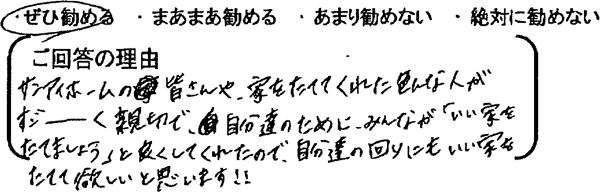 ・ぜひ勧める ・まあまあ勧める ・あまり勧めない ・絶対に勧めない
ご回答の理由
サンアイホームの皆さんや、家をたててくれた色んな人が
すごーーく親切で、自分達のために、みんなが「いい家を
たてましょう」と良くしてくれたので、自分達の回りにもいい家を
たてて欲しいと思います!!